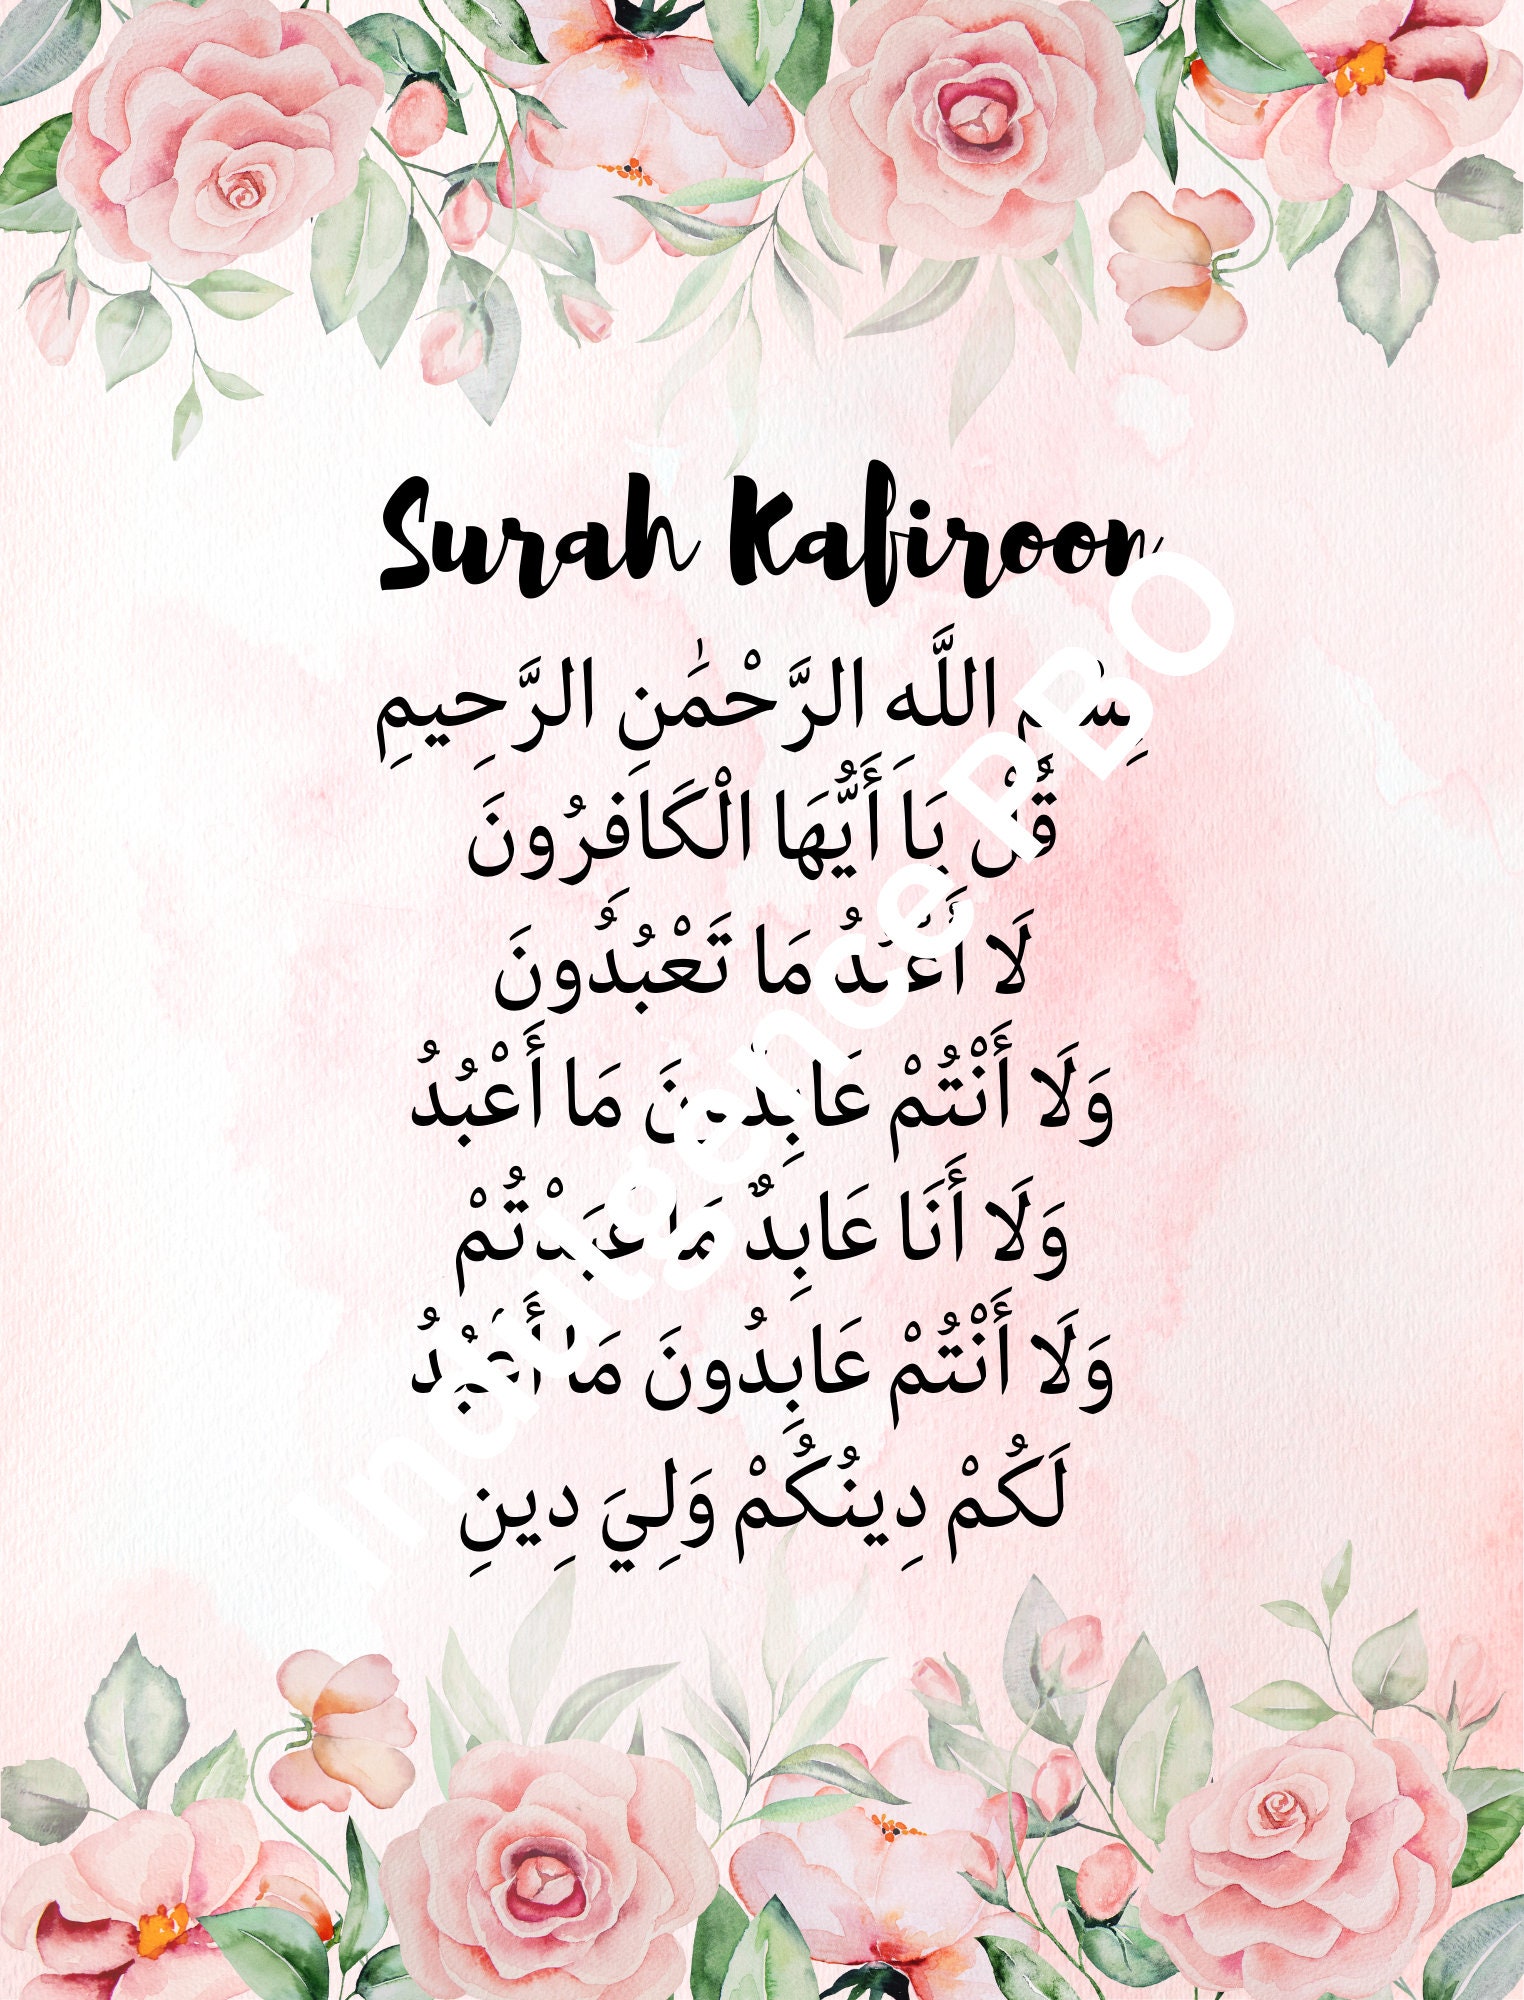 Surah Kafiroon
بِسْمِ اللَّهِ الرَّحْمَٰنِ الرَّحِيمِ
قُلْ يَا أَيُّهَا الْكَافِرُونَ
لَا أَعْبُدُ مَا تَعْبُدُونَ
وَلَا أَنْتُمْ عَابِدُونَ مَا أَعْبُدُ
وَلَا أَنَا عَابِدٌ مَا عَبَدْتُمْ
وَلَا أَنْتُمْ عَابِدُونَ مَا أَعْبُدُ
لَكُمْ دِينُكُمْ وَلِيَ دِينِ
Indulgence PBO